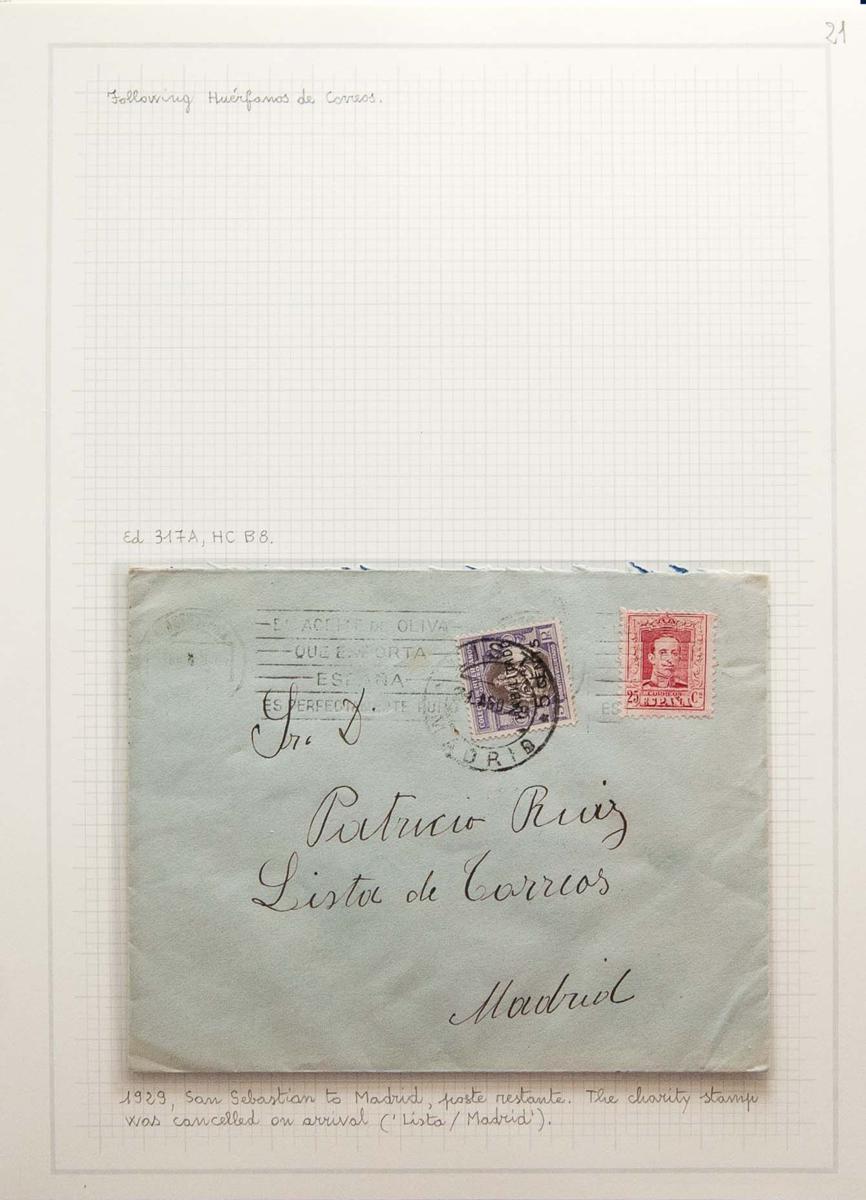 21
Following Huérfanos de Correos.
Ed 317A, HC B8.
EL ACEITE DE OLIVA
QUE EXPORTA
ESPAÑA
ES PERFECTAMENTE PURO
5 CTS
AGO
MADRID
25 CORREOS Cs
ESPAÑA
ES
Sr. D.
Patricio Ruiz
Lista de Correos
Madrid
1929, San Sebastian to Madrid, poste restante. The charity stamp
was cancelled on arrival ('Lista / Madrid').